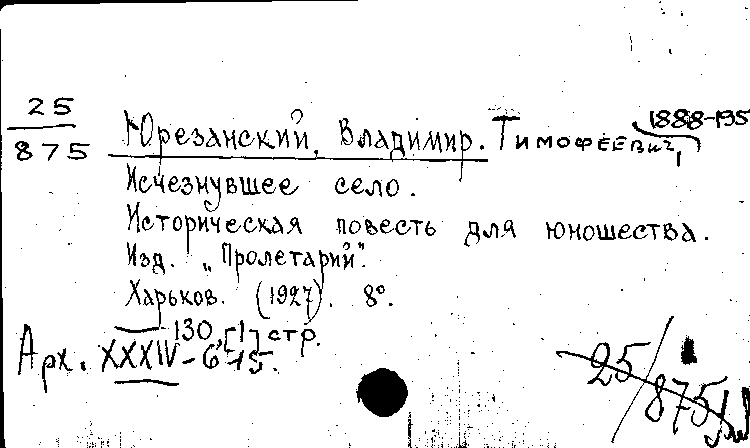 25
875
Юрезанский, Владимир. Тимофеевич, 1888-195
Исчезнувшее село.
Историческая повесть для юношества.
Изд. „Пролетарий".
Харьков. (1927). 8°.
130, [1] стр.
Арх. XXXIV-6-15.
25/875